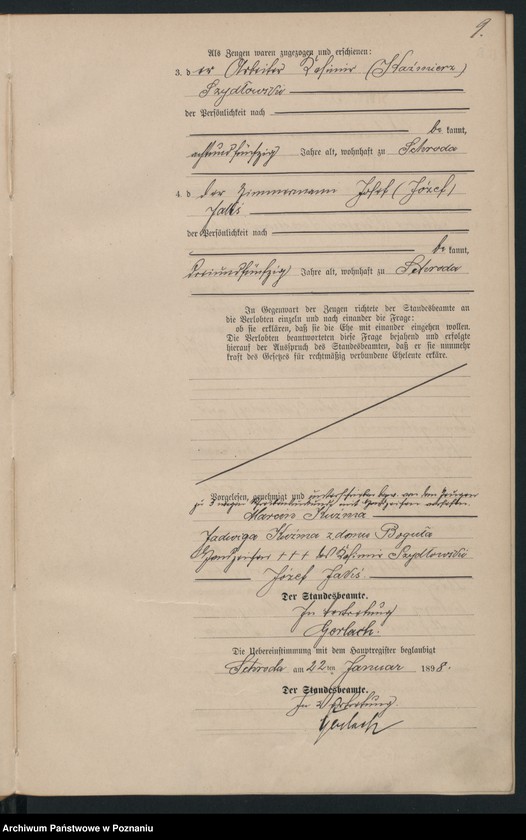 9.
Als Zeugen waren zugezogen und erschienen:
3. d er Arbeiter Kasimir (Kaźmierz)
Szydłowski
der Persönlichkeit nach
be kannt,
achtundfünfzig Jahre alt, wohnhaft zu Schroda
4. d der Zimmermann Josef (Józef)
der Persönlichkeit nach
be kannt,
dreiundfünfzig Jahre alt, wohnhaft zu Schroda
In Gegenwart der Zeugen richtete der Standesbeamte an
die Verlobten einzeln und nach einander die Frage:
ob sie erklären, daß sie die Ehe mit einander eingehen wollen.
Die Verlobten beantworteten diese Frage bejahend und erfolgte
hierauf der Ausspruch des Standesbeamten, daß er sie nunmehr
kraft des Gesetzes für rechtmäßig verbundene Eheleute erkläre.
Vorgelesen, genehmigt und unterschrieben bezw. von dem Zeugen
zu 3 wegen mit Handzeichen versehen.
Marcin Kuźma
Jadwiga Kuźma z domu Boguła
Handzeichen + + + des Kasimir Szydłowski
Józef
Der Standesbeamte.
In Vertretung
Gerlach.
Die Uebereinstimmung mit dem Hauptregister beglaubigt
Schroda am 22ten Januar 1898.
Der Standesbeamte.
In Vertretung.
Gerlach
Archiwum Państwowe w Poznaniu